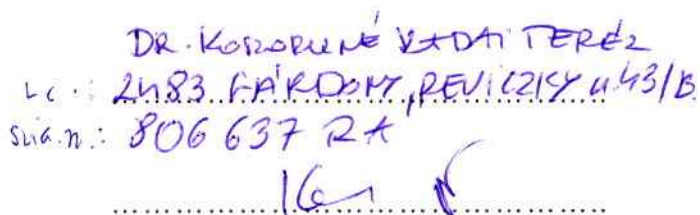 DR. KOSORUNÉ KADAI TERÉZ
LC.: 2483 GÁRDONY, REVICZKY u 43/B.
SZIG.N.: 806 637 RA